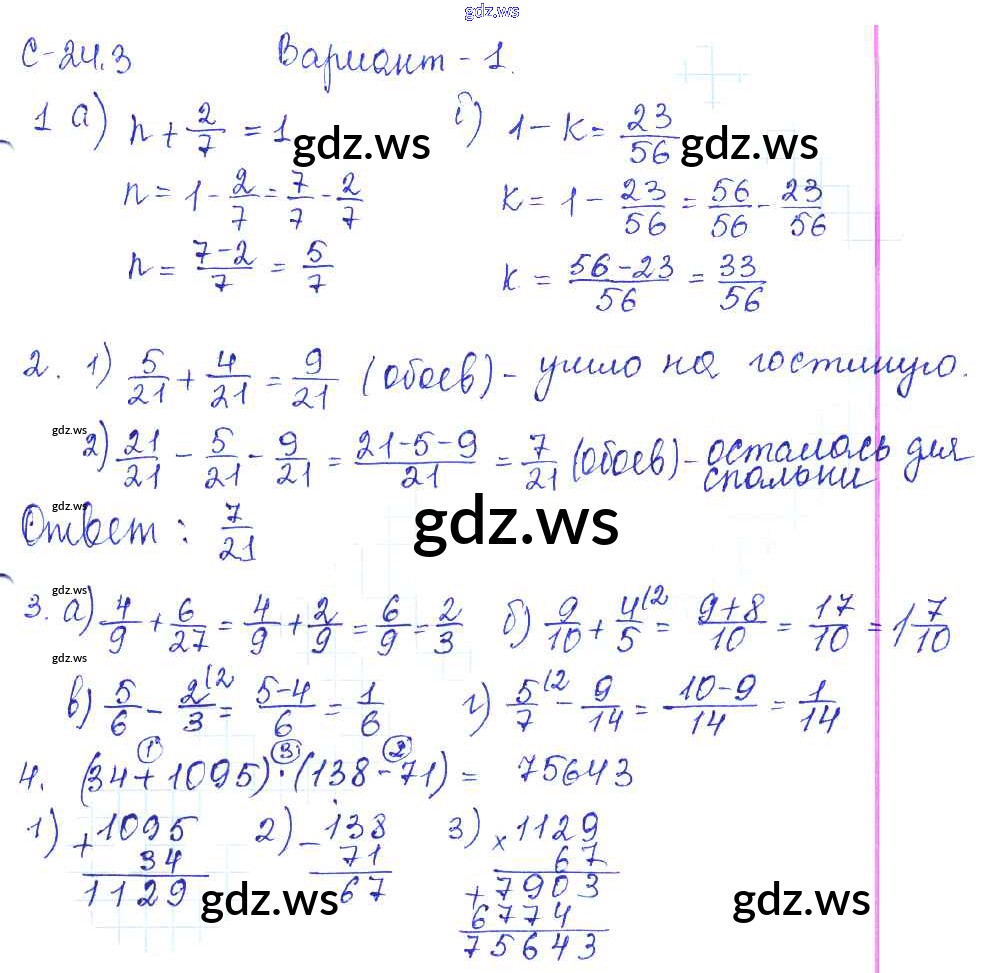 gdz.ws
С-24.3 Вариант - 1.
1 а) n + 2/7 = 1 б) 1 - к = 23/56
gdz.ws gdz.ws
n = 1 - 2/7 = 7/7 - 2/7 к = 1 - 23/56 = 56/56 - 23/56
n = 7-2/7 = 5/7 к = 56-23/56 = 33/56
2. 1) 5/21 + 4/21 = 9/21 (обоев) - ушло на гостиную.
gdz.ws
2) 21/21 - 5/21 - 9/21 = 21-5-9/21 = 7/21 (обоев) - осталось для
спальни
gdz.ws
Ответ: 7/21
gdz.ws
gdz.ws
3. а) 4/9 + 6/27 = 4/9 + 2/9 = 6/9 = 2/3 б) 9/10 + 4/5 (2 = 9+8/10 = 17/10 = 1 7/10
gdz.ws
в) 5/6 - 2/3 (2 = 5-4/6 = 1/6 г) 5/7 (2 - 9/14 = 10-9/14 = 1/14
1 3 2
4. (34 + 1095) · (138 - 71) = 75643
1) + 1095 2) - 138 3) x 1129
34 71 67
1129 67 + 7903
gdz.ws gdz.ws
6774
75643